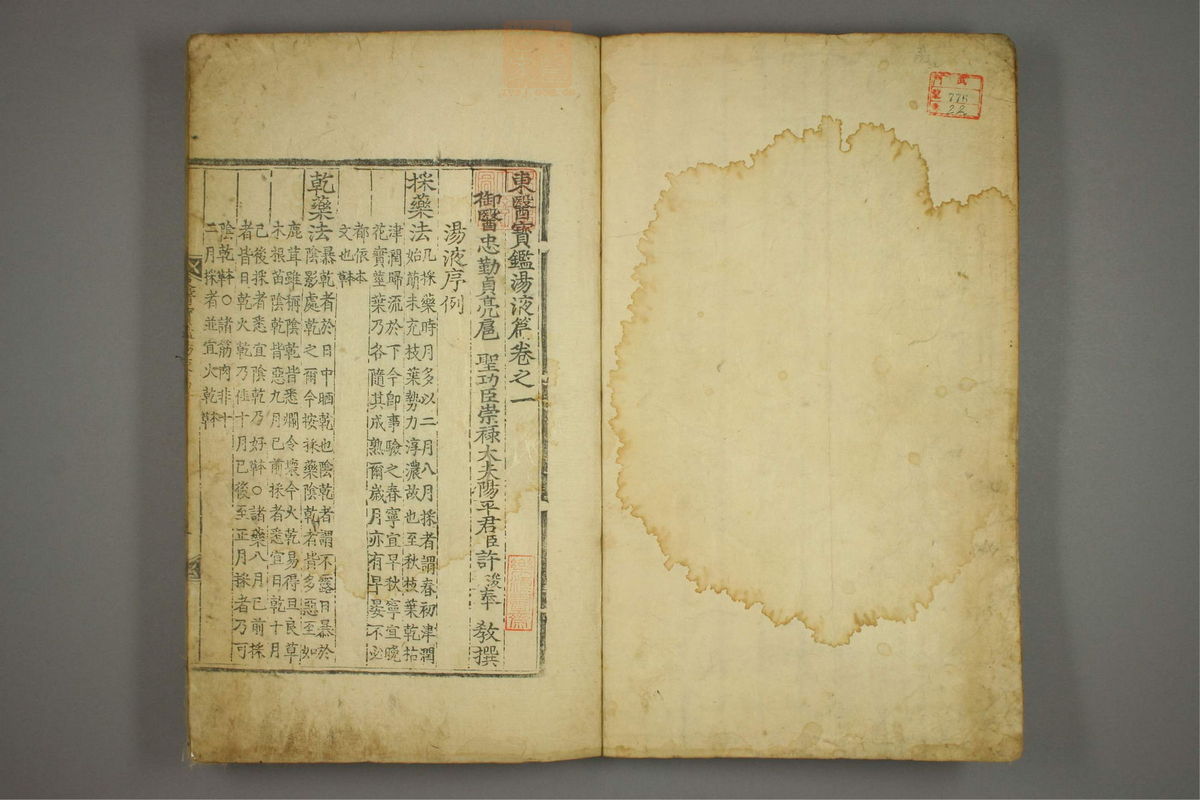 東醫寶鑑湯液篇卷之一
御醫忠勤貞亮扈 聖功臣崇祿大夫陽平君臣許浚奉 敎撰
湯液序例
採藥法
凡採藥時月多以二月八月採者謂春初津潤
始萌未充枝葉勢力淳濃故也至秋枝葉乾枯
津潤歸流於下今卽事驗之春寧宜早秋寧宜晩
花實莖葉乃各隨其成熟爾歲月亦有早晏不必
都依本
文也
乾藥法
暴乾者於日中晒乾也陰乾者謂不露日暴於
陰影處乾之爾今按採藥陰乾者皆多惡至如
鹿茸雖稱陰乾皆悉爛令壞今火乾易得且良草
木根苗陰乾皆惡九月已前採者悉宜日乾十月
已後採者悉宜陰乾乃好○諸藥八月已前採
者皆日乾火乾乃佳十月已後至正月採者乃可
陰乾○諸筋肉非十
二月採者並宜火乾
775
22